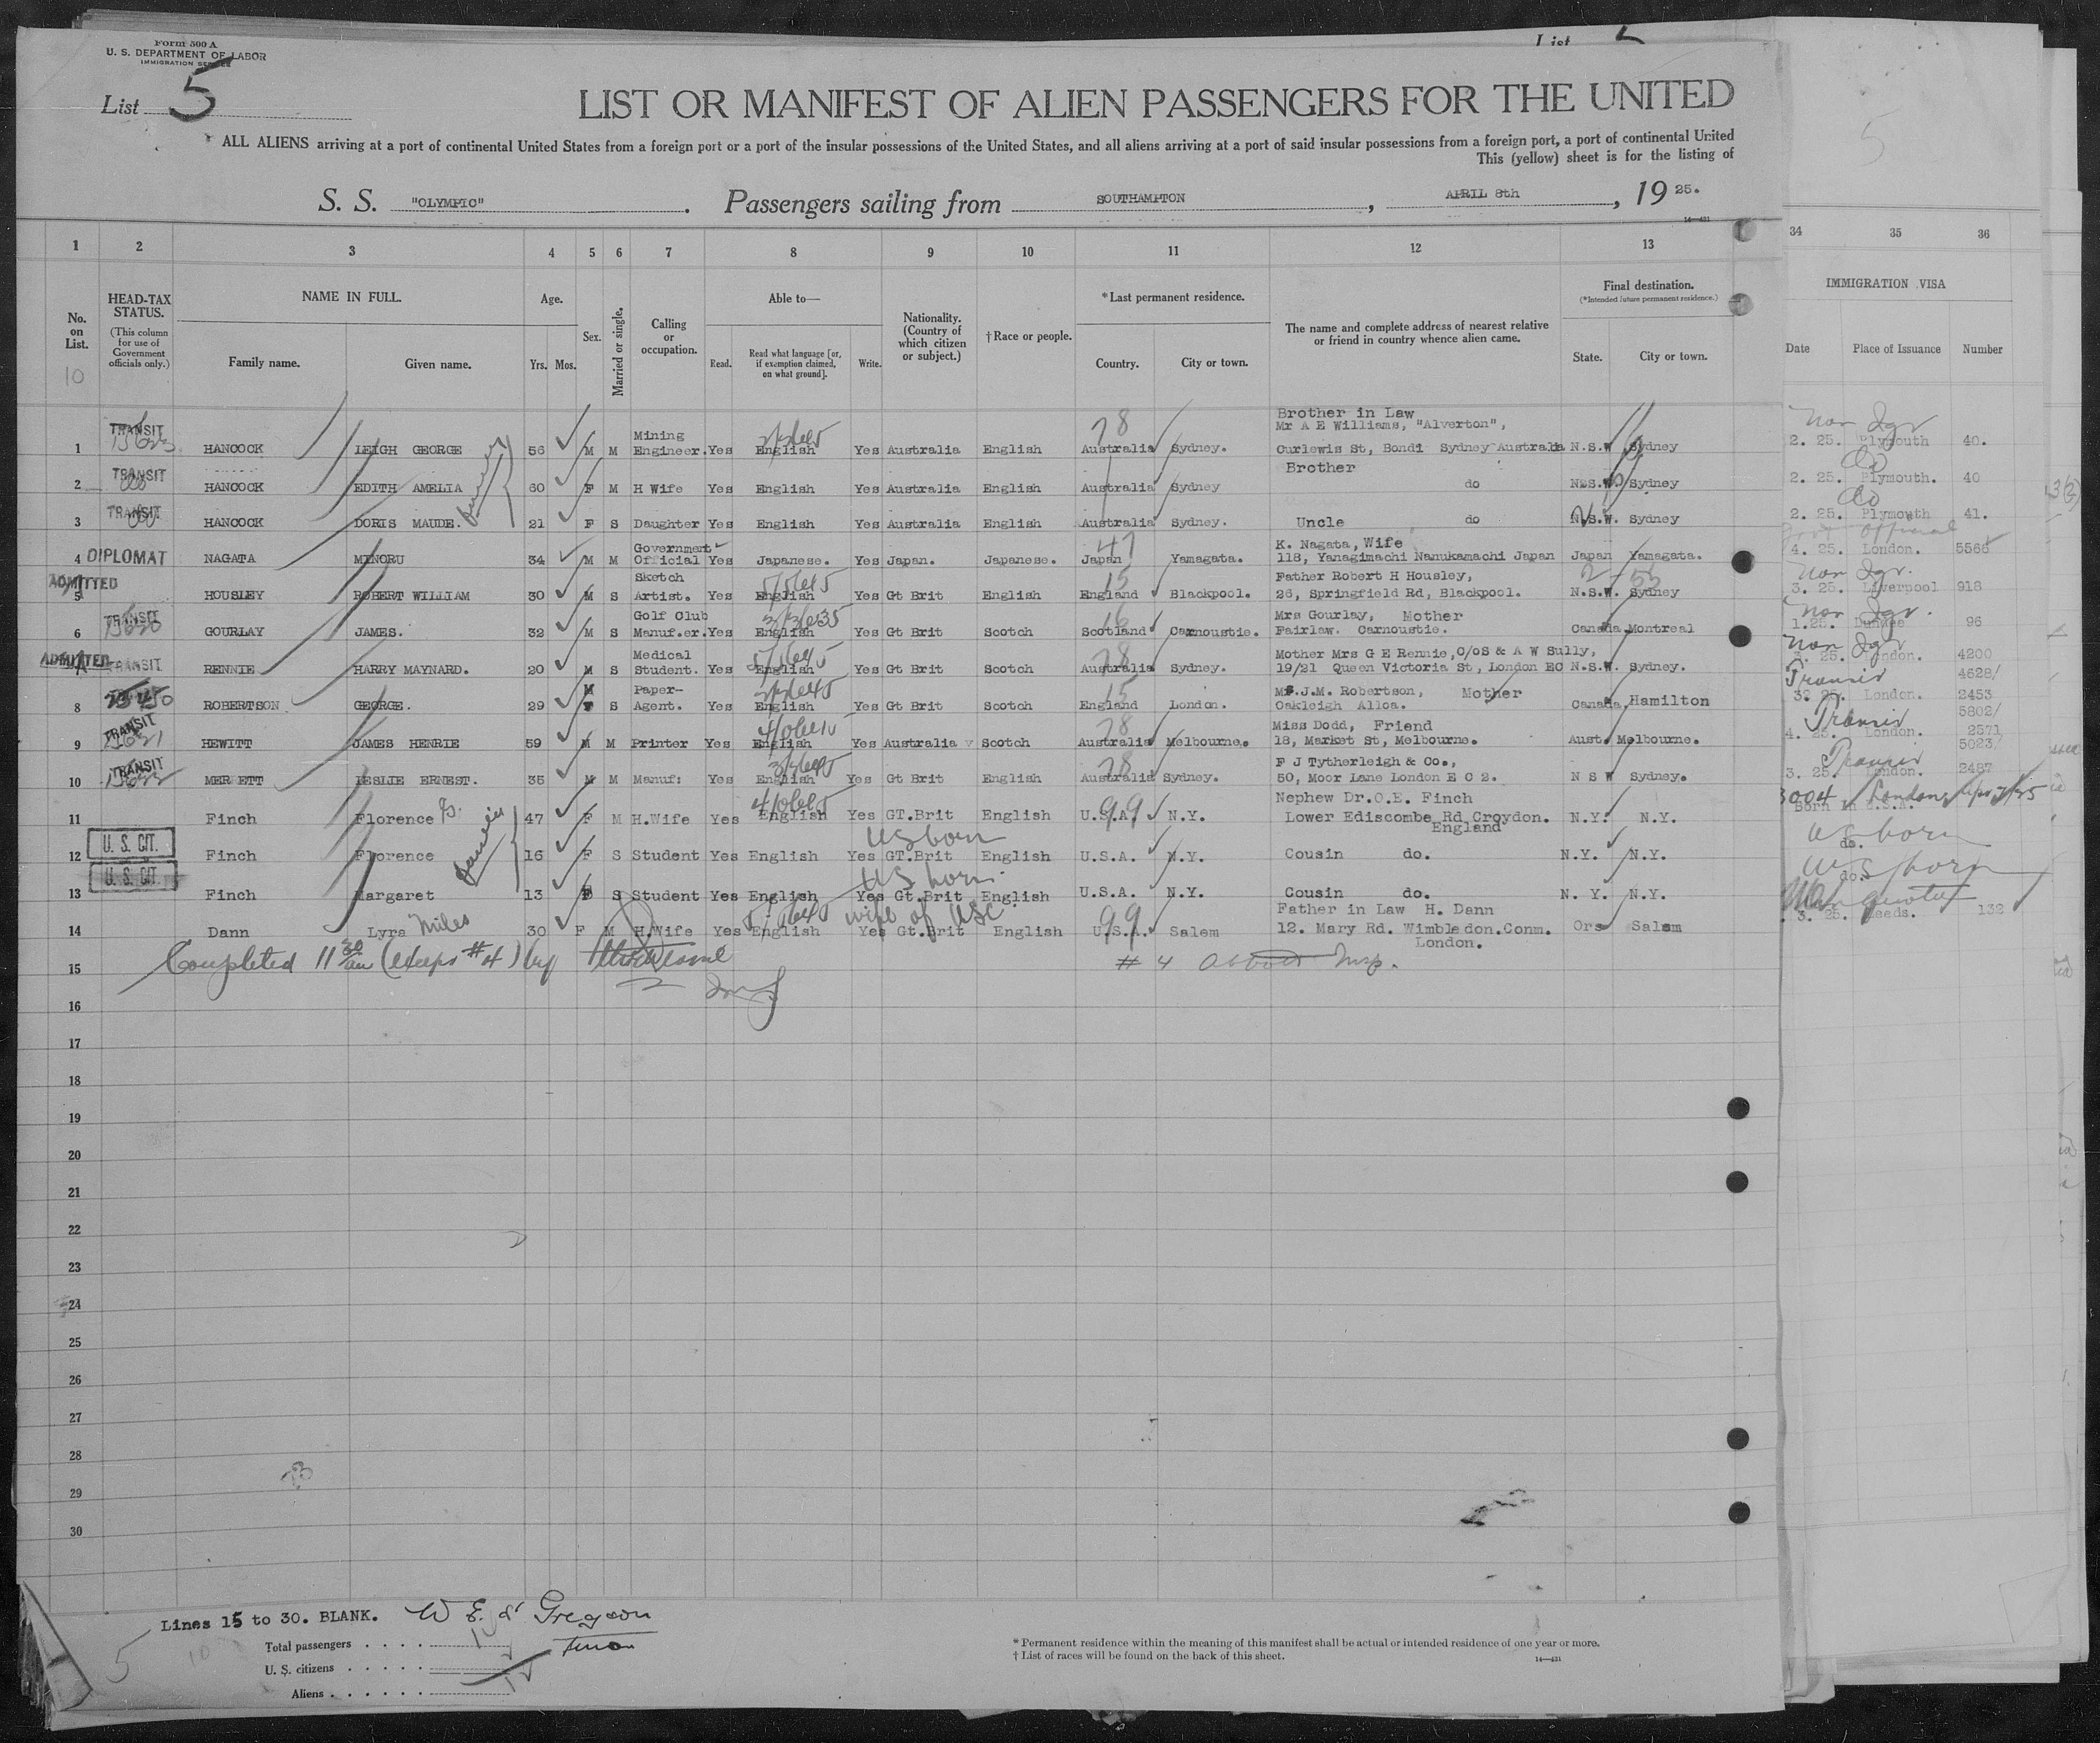 Form 500 A
U. S. DEPARTMENT OF LABOR
IMMIGRATION SERVICE
List
List 5
LIST OR MANIFEST OF ALIEN PASSENGERS FOR THE UNITED
ALL ALIENS arriving at a port of continental United States from a foreign port or a port of the insular possessions of the United States, and all aliens arriving at a port of said insular possessions from a foreign port, a port of continental United
This (yellow) sheet is for the listing of
S. S. "OLYMPIC". Passengers sailing from SOUTHAMPTON, APRIL 8th, 1925.
14—431
1 2 3 4 5 6 7 8 9 10 11 12 13 34 35 36
No. on List.
HEAD-TAX STATUS.
(This column for use of Government officials only.)
NAME IN FULL.
Family name. Given name.
Age.
Yrs. Mos.
Sex.
Married or single.
Calling or occupation.
Able to—
Read. Read what language [or, if exemption claimed, on what ground]. Write.
Nationality. (Country of which citizen or subject.)
†Race or people.
*Last permanent residence.
Country. City or town.
The name and complete address of nearest relative or friend in country whence alien came.
Final destination.
(*Intended future permanent residence.)
State. City or town.
IMMIGRATION VISA
Date Place of Issuance Number
10
1 TRANSIT HANCOCK LEIGH GEORGE 56 M M Mining Engineer. Yes English Yes Australia English 78 Australia Sydney. Brother in Law Mr A E Williams, "Alverton", Curlewis St, Bondi Sydney Australia N.S.W Sydney 2. 25. Plymouth 40.
2 TRANSIT HANCOCK EDITH AMELIA 60 F M H Wife Yes English Yes Australia English Australia Sydney Brother do N.S.W. Sydney do 2. 25. Plymouth. 40
3 TRANSIT HANCOCK DORIS MAUDE. 21 F S Daughter Yes English Yes Australia English Australia Sydney. Uncle do N.S.W. Sydney do 2. 25. Plymouth 41.
4 DIPLOMAT NAGATA MINORU 34 M M Government Official Yes Japanese. Yes Japan. Japanese. 47 Japan Yamagata. K. Nagata, Wife 118, Yanagimachi Nanukamachi Japan Japan Yamagata. Official 4. 25. London. 5566
5 ADMITTED HOUSLEY ROBERT WILLIAM 30 M S Sketch Artist. Yes English Yes Gt Brit English 15 England Blackpool. Father Robert H Housley, 26, Springfield Rd, Blackpool. N.S.W. Sydney 3. 25. Liverpool 918
6 TRANSIT GOURLAY JAMES. 32 M S Golf Club Manuf.er. Yes English Yes Gt Brit Scotch 16 Scotland Carnoustie. Mrs Gourlay, Mother Fairlaw. Carnoustie. Canada Montreal 1.25. Dundee 96
7 ADMITTED TRANSIT RENNIE HARRY MAYNARD. 20 M S Medical Student. Yes English Yes Gt Brit Scotch 78 Australia Sydney. Mother Mrs G E Rennie, C/OS & A W Sully, 19/21 Queen Victoria St, London EC N.S.W. Sydney. 3. 25. London. 4200
8 ROBERTSON GEORGE. 29 M S Paper-Agent. Yes English Yes Gt Brit Scotch 15 England London. J.M. Robertson, Mother Oakleigh Alloa. Canada Hamilton Transit 25. London. 4628/ 2453
9 TRANSIT HEWITT JAMES HENRIE 59 M M Printer Yes English Yes Australia Scotch 78 Australia Melbourne. Miss Dodd, Friend 18, Market St, Melbourne. Aust. Melbourne. Transit 4. 25. London. 5802/ 2571
10 TRANSIT MER ETT LESLIE ERNEST. 35 M M Manuf: Yes English Yes Gt Brit English 78 Australia Sydney. F J Tytherleigh & Co., 50, Moor Lane London E C 2. N S W Sydney. Transit 3. 25. London. 5023/ 2487
11 Finch Florence 47 F M H.Wife Yes English Yes GT.Brit English 99 U.S.A. N.Y. Nephew Dr.O.E. Finch Lower Ediscombe Rd Croydon. England N.Y. N.Y. London
12 U. S. CIT. Finch Florence 16 F S Student Yes English Yes GT.Brit US born English U.S.A. N.Y. Cousin do. N.Y. N.Y. US born do.
13 U. S. CIT. Finch Margaret 13 F S Student Yes English Yes Gt.Brit US born English U.S.A. N.Y. Cousin do. N. Y. N.Y. US born do.
14 Dann Lyra Miles 30 F M H.Wife Yes English Yes Gt.Brit wife of USC English 99 U.S.A. Salem Father in Law H. Dann 12. Mary Rd. Wimbledon.Conm. London. Ore Salem 3. 25. Leeds. 132
15 Completed 11 30 am (except #4) by # 4 Insp.
16
17
18
19
20
21
22
23
24
25
26
27
28
29
30
Lines 15 to 30. BLANK.
Total passengers
U. S. citizens
Aliens
5
* Permanent residence within the meaning of this manifest shall be actual or intended residence of one year or more.
† List of races will be found on the back of this sheet.
14—431